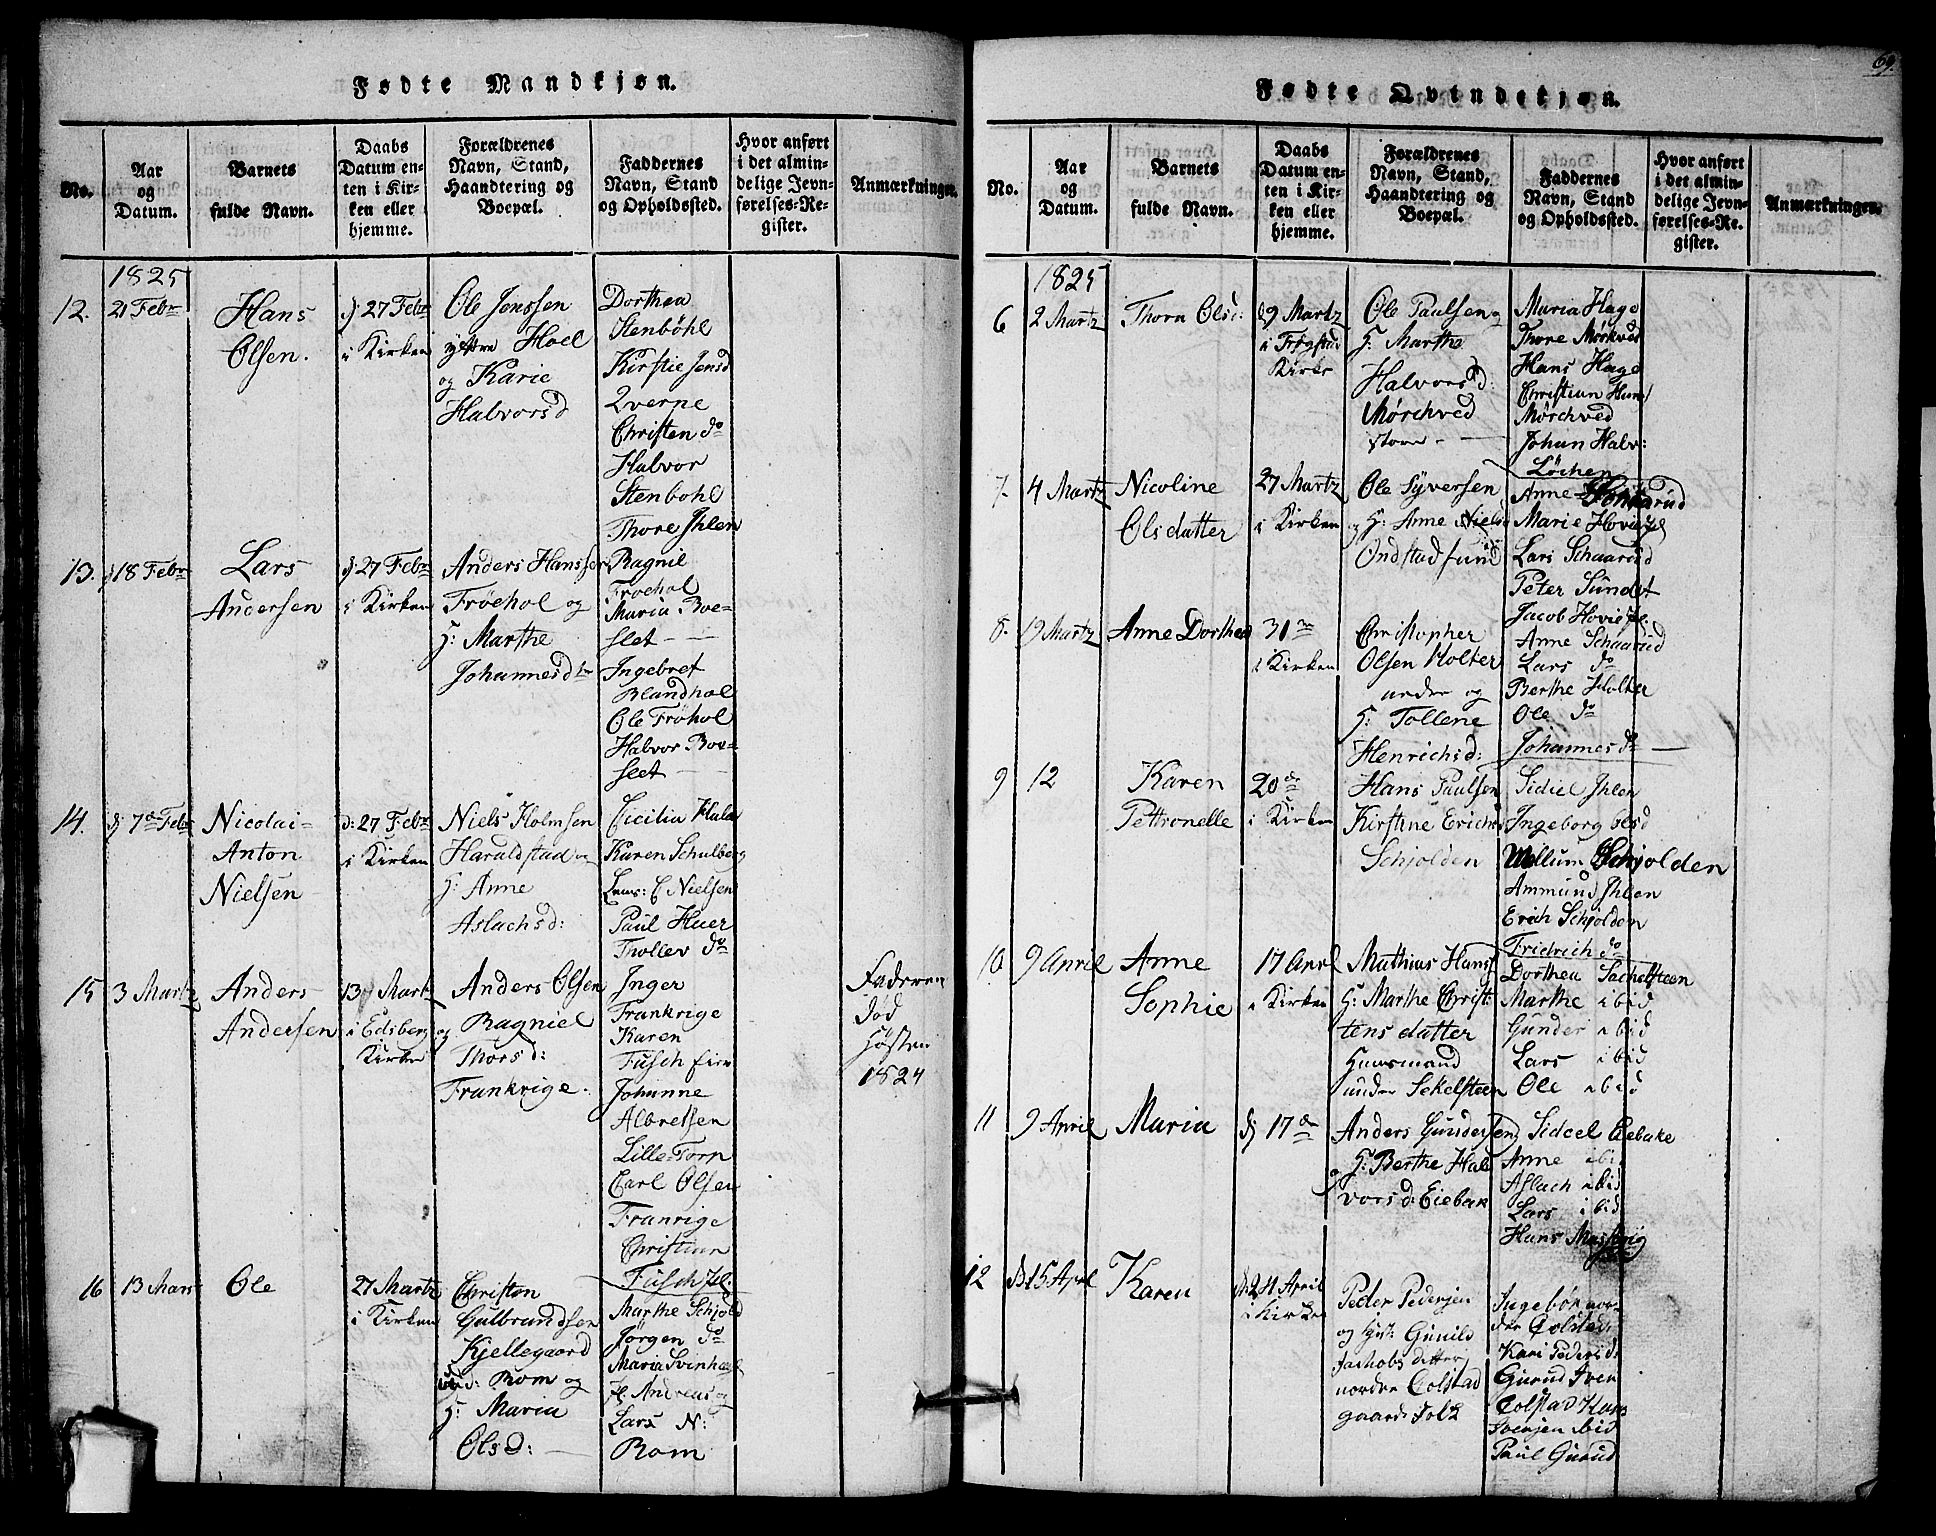 Fødte Mandkjøn.
No.
Aar
og
Datum.
Barnets
fulde Navn.
Daabs
Datum en-
ten i Kir-
ken eller
hjemme.
Forældrenes
Navn, Stand,
Haandtering og
Boepæl.
Faddernes
Navn, Stand
og Opholdssted.
Hvor anført
i det almin-
delige Jevn-
førelses-Re-
gister.
Anmærkninger.
1825
12.
21 Febr
Hans
Olsen.
27 Febr
i Kirken
Ole Jonssen
Hoel
og Karie
Halvorsd
Dorthea
Stenböhl
Kirstie Jensd
Qverne
Christen do
Halvor
Stenbohl
Thore Ihlen
13.
18 Febr
Lars
Andersen
27 Febr
i Kirken
Anders Hanssen
Fröehol og
H: Marthe
Johannesdtr
Ragnil
Froehol
Maria Boe-
slet
Ingebret
Blandhol
Ole Fröhol
Halvor Boe-
slet
14.
7de Febr
Nicolai
Anton
Nielsen
d: 27 Febr
i Kirken
Niels Holmsen
Haraldstad og
H: Anne
Aslachsd:
Cicilia Hula
Karen Schulberg
Lars: C Nielsen
Paul Huer
Thollev do
15
3 Martz
Anders
Andersen
13 Martz
i Edsberg
Kirke
Anders Olsen
og Ragniel
Thorsd:
Frankrige.
Inger
Frankrige
Karen
Fusch
Johanne
Albretsen
Lille-Torp
Carl Olsen
Franrige
Christian
Fusch
Faderen
död
Hösten
1824
16
13 Mars
Ole
27 Martz
i Kirken
Christen
Gulbrandsen
Kjellegaard
Rom og
H: Maria
Olsd:
Marthe Schjold
Jørgen do
Maria Svinhau
Andreas og
Lars N:
Rom
69.
Fødte Qvindekjøn.
No.
Aar
og
Datum.
Barnets
fulde Navn.
Daabs
Datum en-
ten i Kir-
ken eller
hjemme.
Forældrenes
Navn, Stand,
Haandtering og
Boepæl.
Faddernes
Navn, Stand
og Opholdssted.
Hvor anført
i det almin-
delige Jevn-
førelses-Re-
gister.
Anmærkninger.
1825
6
2 Martz
Thorn Olsd:
9 Martz
i Trøgstad
Kirke
Ole Paulsen og
H: Marthe
Halvorsd:
Mørchved
store
Maria Hage
Thore Mørkved
Hans Hage
Christian
Mørchved
Johan Halv:
Löchen
7.
4 Martz
Nicoline
Olsdatter
27 Martz
i Kirken
Ole Syversen
og H: Anne Nielsd
Ondstadsund
Anne
Marie Hovie
Lars Schaarud
Peter Sundet
Jacob Hovie
8.
9 Martz
Anne Dorthea
31te
i Kirken
Christopher
Olsen Holter
nedre og
H: Tollene
Henrichsd:
Anne Schaarud
Lars do
Berthe Holter
Ole do
Johannes do
9
12
Karen
Pettronelle
20de
i Kirken
Hans Paulsen
Kirstine Erichs
Schjolden
Sidiel Ihlen
Ingeborg olsd
Schjolden
Ammund Ihlen
Erich Schjolden
Fridrich do
10.
9 April
Anne
Sophie
17 Aprl
i Kirken
Mathias Hans
H: Marthe Christ:
tensdatter
Huusmand
under Sekelsteen
Dorthea Sachelsteen
Marthe ibid
Gunder ibid
Lars ibid
Ole ibid
11
9 April
Maria
17de
Anders Gundersen
og H: Berthe Hal
vorsd: Eiebak
Sidcel Eiebake
Anne ibid
Aslach ibid
Lars ibid
Hans
12
15 Aprl
Karen
24 April
i Kirken
Peder Pedersen
og Hst: Gunild
Jachobsdatter
nordre Colstad
gaard: folk
Ingebör nor-
dre Colstad
Kari Pedersd:
Gurud Sven
Colstad Kars
Svensen ibid
Paul Gurud